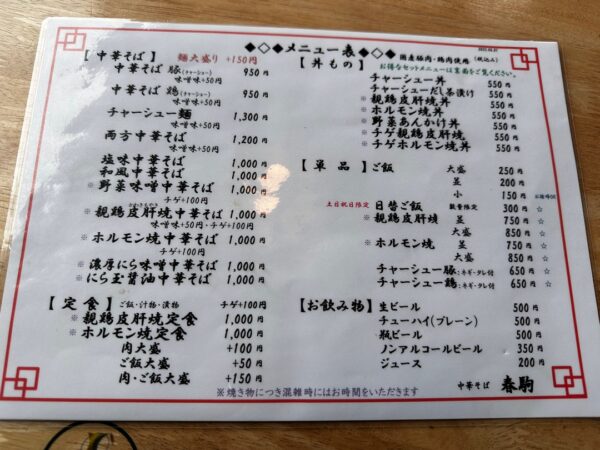 ◆◇◆メニュー表◆◇◆ 国産豚肉・鶏肉使用 (税込み)
【 中華そば 】 麺大盛り +150円
中華そば 豚(チャーシュー) 950円
味噌味+50円
中華そば 鶏(チャーシュー) 950円
味噌味+50円
チャーシュー麺 1,300円
味噌味+50円
両方中華そば 1,200円
味噌味+50円
塩味中華そば 1,000円
和風中華そば 1,000円
※野菜味噌中華そば 1,000円
チゲ+100円
※親鶏皮肝焼中華そば 1,000円
味噌味+50円・チゲ+100円
※ホルモン焼中華そば 1,000円
チゲ+100円
※濃厚にら味噌中華そば 1,000円
※にら玉醤油中華そば 1,000円
【 定食 】 ご飯・汁物・漬物 チゲ+100円
※親鶏皮肝焼定食 1,000円
※ホルモン焼定食 1,000円
肉大盛 +100円
ご飯大盛 +50円
肉・ご飯大盛 +150円
【 丼もの 】 お得なセットメニューは裏面をご覧ください。
チャーシュー丼 550円
チャーシューだし茶漬け 550円
※親鶏皮肝焼丼 550円
※ホルモン焼丼 550円
※野菜あんかけ丼 550円
※チゲ親鶏皮肝焼丼 550円
※チゲホルモン焼丼 550円
【 単品 】 ご飯 大盛 250円
並 200円
小 150円
土日祝日限定 日替ご飯 数量限定 300円 ☆
※親鶏皮肝焼 並 750円 ☆
大盛 850円 ☆
※ホルモン焼 並 750円 ☆
大盛 850円 ☆
チャーシュー豚:ネギ・タレ付 650円 ☆
チャーシュー鶏:ネギ・タレ付 650円 ☆
【お飲み物】 生ビール 500円
チューハイ(プレーン) 500円
瓶ビール 500円
ノンアルコールビール 350円
ジュース 200円
※焼き物につき混雑時にはお時間をいただきます
中華そば 春駒